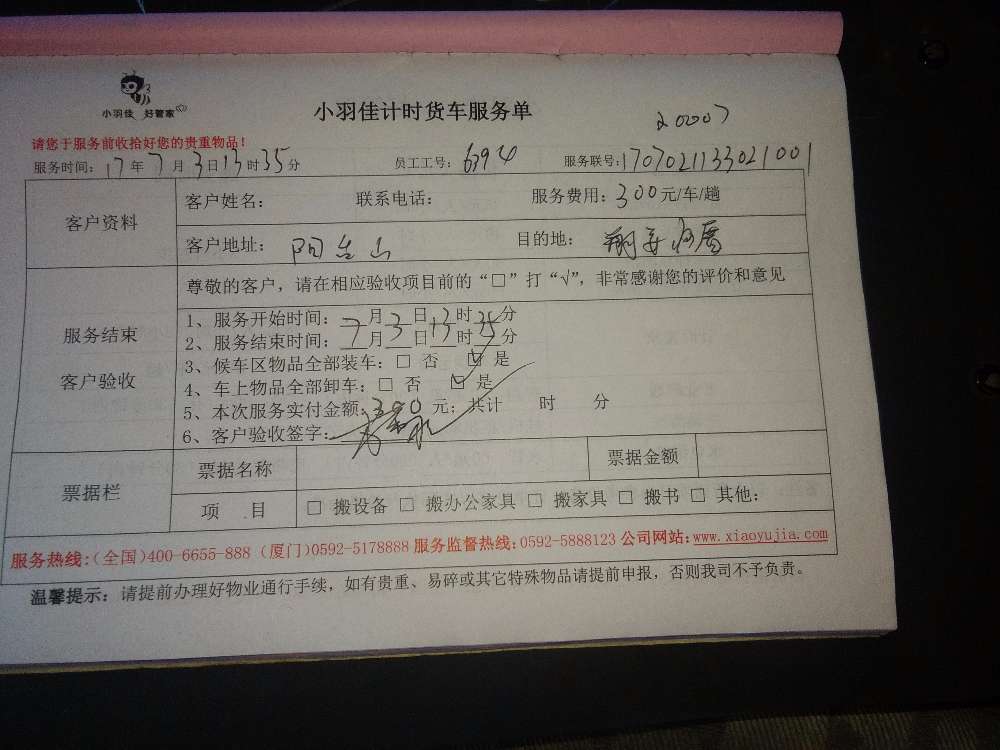 小羽佳 好管家
小羽佳计时货车服务单
20007
请您于服务前收拾好您的贵重物品！
服务时间：17年7月3日13时35分 员工工号：6394 服务联号：170702113302 1001
客户资料
客户姓名： 联系电话： 服务费用：300元/车/趟
客户地址： 目的地：
尊敬的客户，请在相应验收项目前的“□”打“√”，非常感谢您的评价和意见
服务结束
客户验收
1、服务开始时间：7月3日13时35分
2、服务结束时间：7月3日13时 分
3、候车区物品全部装车：□ 否 ☑ 是
4、车上物品全部卸车：□ 否 ☑ 是
5、本次服务实付金额：300元；共计 时 分
6、客户验收签字：
票据栏
票据名称 票据金额
项 目 □ 搬设备 □ 搬办公家具 □ 搬家具 □ 搬书 □ 其他：
服务热线：（全国）400-6655-888（厦门）0592-5178888 服务监督热线：0592-5888123 公司网站：www.xiaoyujia.com
温馨提示：请提前办理好物业通行手续，如有贵重、易碎或其它特殊物品请提前申报，否则我司不予负责。